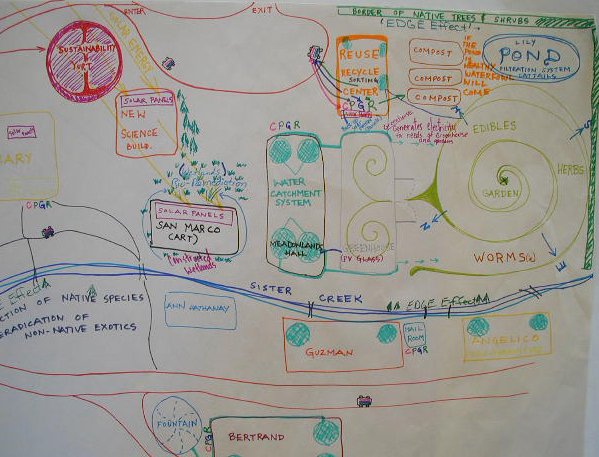 BORDER OF NATIVE TREES & SHRUBS
"EDGE Effect"
EXIT
SOLAR ENERGY
SUSTAINABILITY
YURT
SOLAR PANELS
NEW
SCIENCE
BUILD.
REUSE
RECYCLE
SORTING
CENTER
CPGR
COMPOST
COMPOST
COMPOST
IF
THE
POND
IS
HEALTHY
WATERFOWL
WILL
COME
LILY
POND
FILTRATION SYSTEM
CATTAILS
EDIBLES
HERBS
GARDEN
WORMS(W)
N
S
E
CPGR
WATER
CATCHMENT
SYSTEM
MEADOWLANDS
HALL
GREENHOUSE
(PV GLASS)
Wetlands
Bio-Remediation
SOLAR PANELS
SAN MARCO
CART)
ARY
CPGR
SISTER
CREEK
EDGE Effect
Effect
CTION OF NATIVE SPECIES
ERADICATION OF
NON-NATIVE EXOTICS
ANN HATHAWAY
GUZMAN
MAIL
ROOM
CPGR
ANGELICO
FOUNTAIN
CPGR
BERTRAND